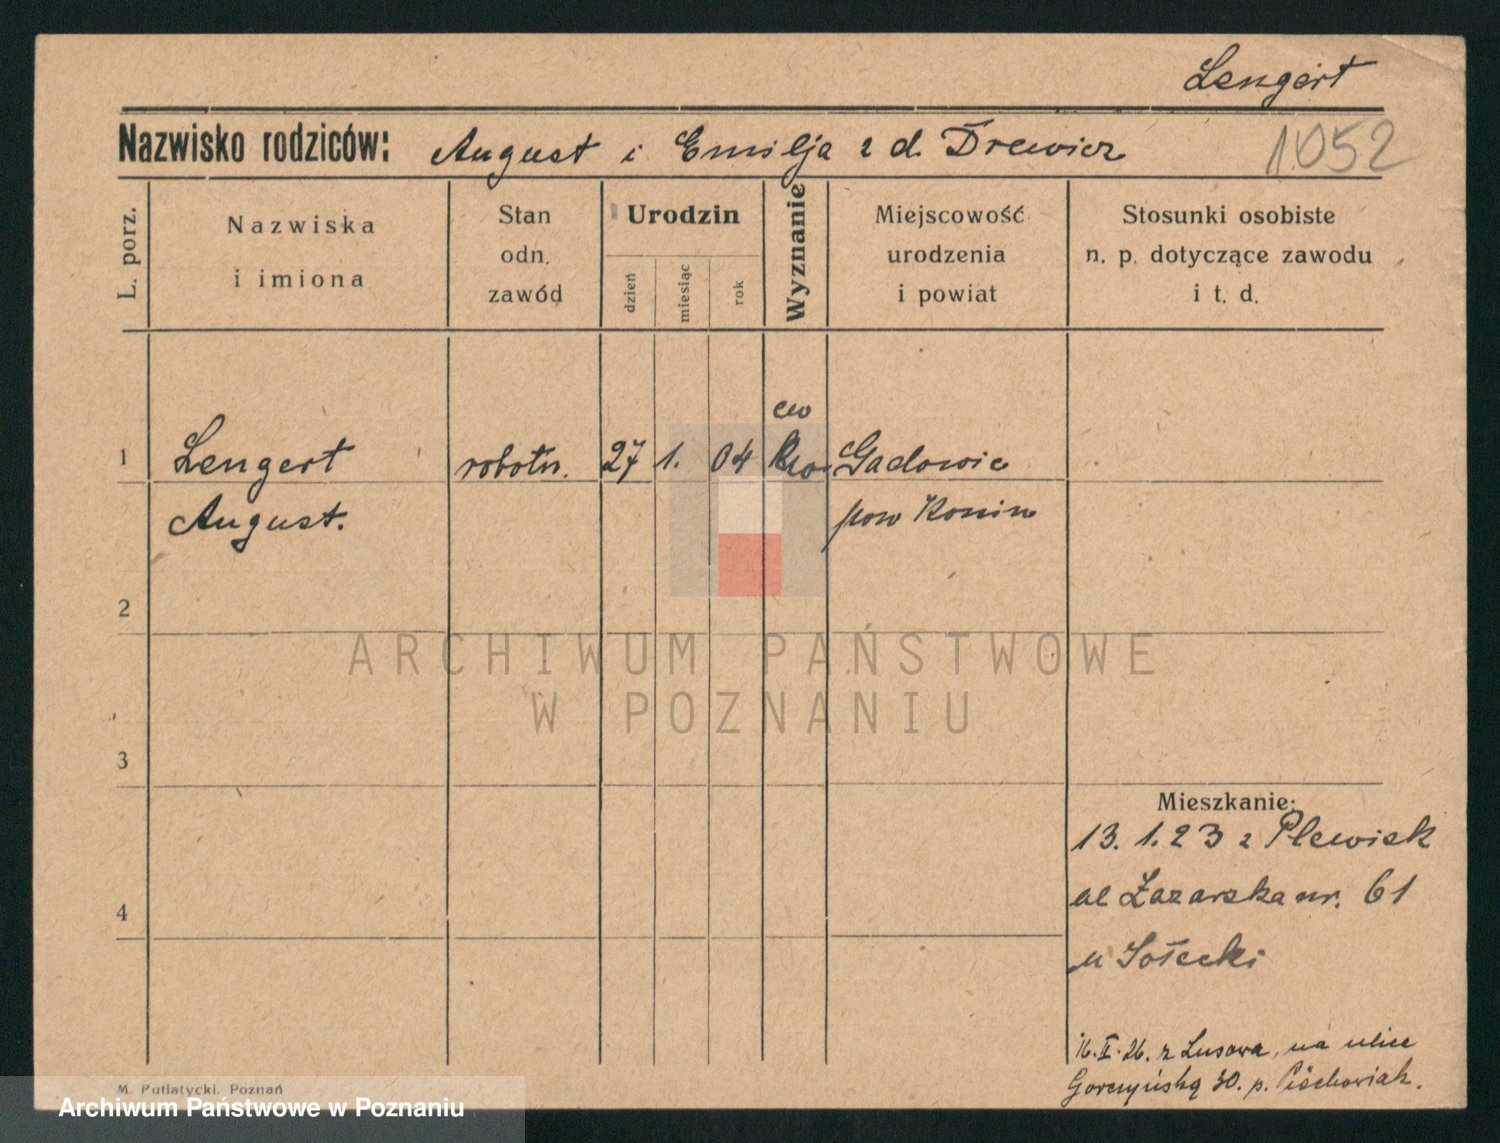 Lengert
Nazwisko rodziców: August i Emilja z d. Drewicz
1052
L. porz.
Nazwiska
i imiona
Stan
odn.
zawód
Urodzin
dzień
miesiąc
rok
Wyznanie
Miejscowość
urodzenia
i powiat
Stosunki osobiste
n. p. dotyczące zawodu
i t. d.
ew
1 Lengert robotn. 27 1. 04 Gadowie
August. pow Konin
2
ARCHIWUM PAŃSTWOWE
W POZNANIU
3
Mieszkanie:
13. 1. 23 z Plewisk
ul Łazarska nr. 61
4
u Sołecki
16. II. 26. z Lusowa, na ulice
Gorczyńską 30. p. Piechowiak.
M. Putiatycki, Poznań
Archiwum Państwowe w Poznaniu